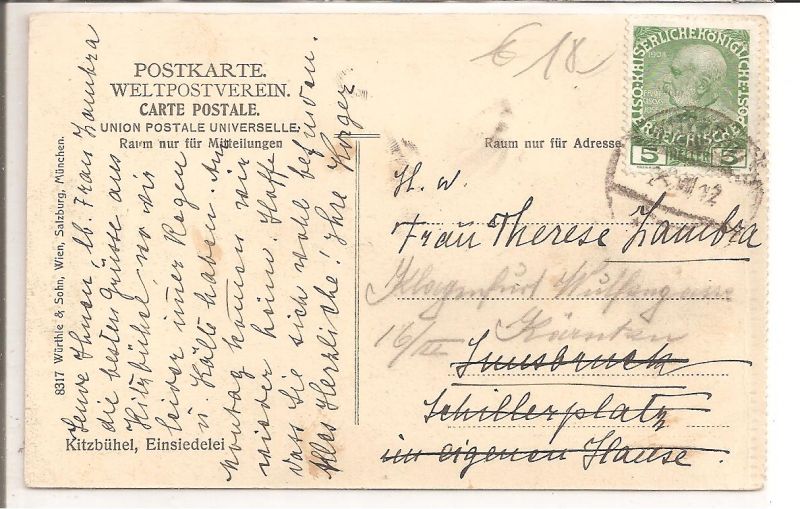 POSTKARTE.
WELTPOSTVEREIN.
CARTE POSTALE.
UNION POSTALE UNIVERSELLE.
Raum nur für Mitteilungen
Ihnen, lb. Frau Zambra
die besten Grüsse aus
Kitzbühel, wo wir
leider imer Regen
u. Kälte haben. Am
Montag komen wir
wieder heim. Hoffe
dass Sie sich wohl befinden.
Alles Herzliche! Ihre
8317 Würthle & Sohn, Wien, Salzburg, München.
Kitzbühel, Einsiedelei
€ 18
KAISERLICHE KÖNIGLICHE ÖSTERREICHISCHE
1908
5 5
12
Raum nur für Adresse
H. W.
Frau Therese Zambra
Klagenfurt
16/III Kärnten
Innsbruck
Schillerplatz
im eigenen Hause.